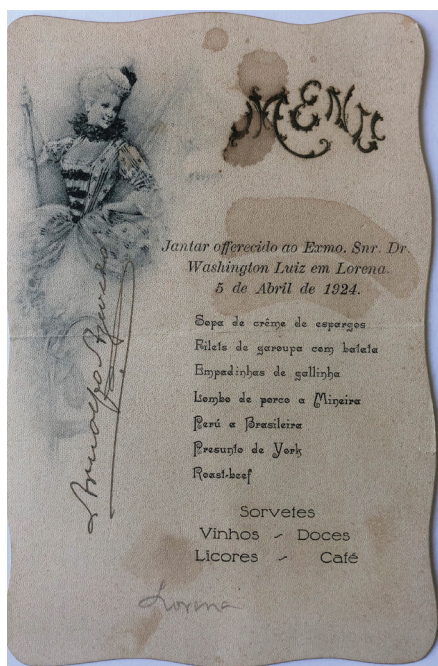 MENU
Jantar offerecido ao Exmo. Snr. Dr.
Washington Luiz em Lorena.
5 de Abril de 1924.
Sopa de crême de espargos
Filets de garoupa com batata
Empadinhas de gallinha
Lombo de porco a Mineira
Perú a Brasileira
Presunto de York
Roast-beef
Sorvetes
Vinhos ~ Doces
Licores ~ Café
Arnolfo Azevedo
Lorena